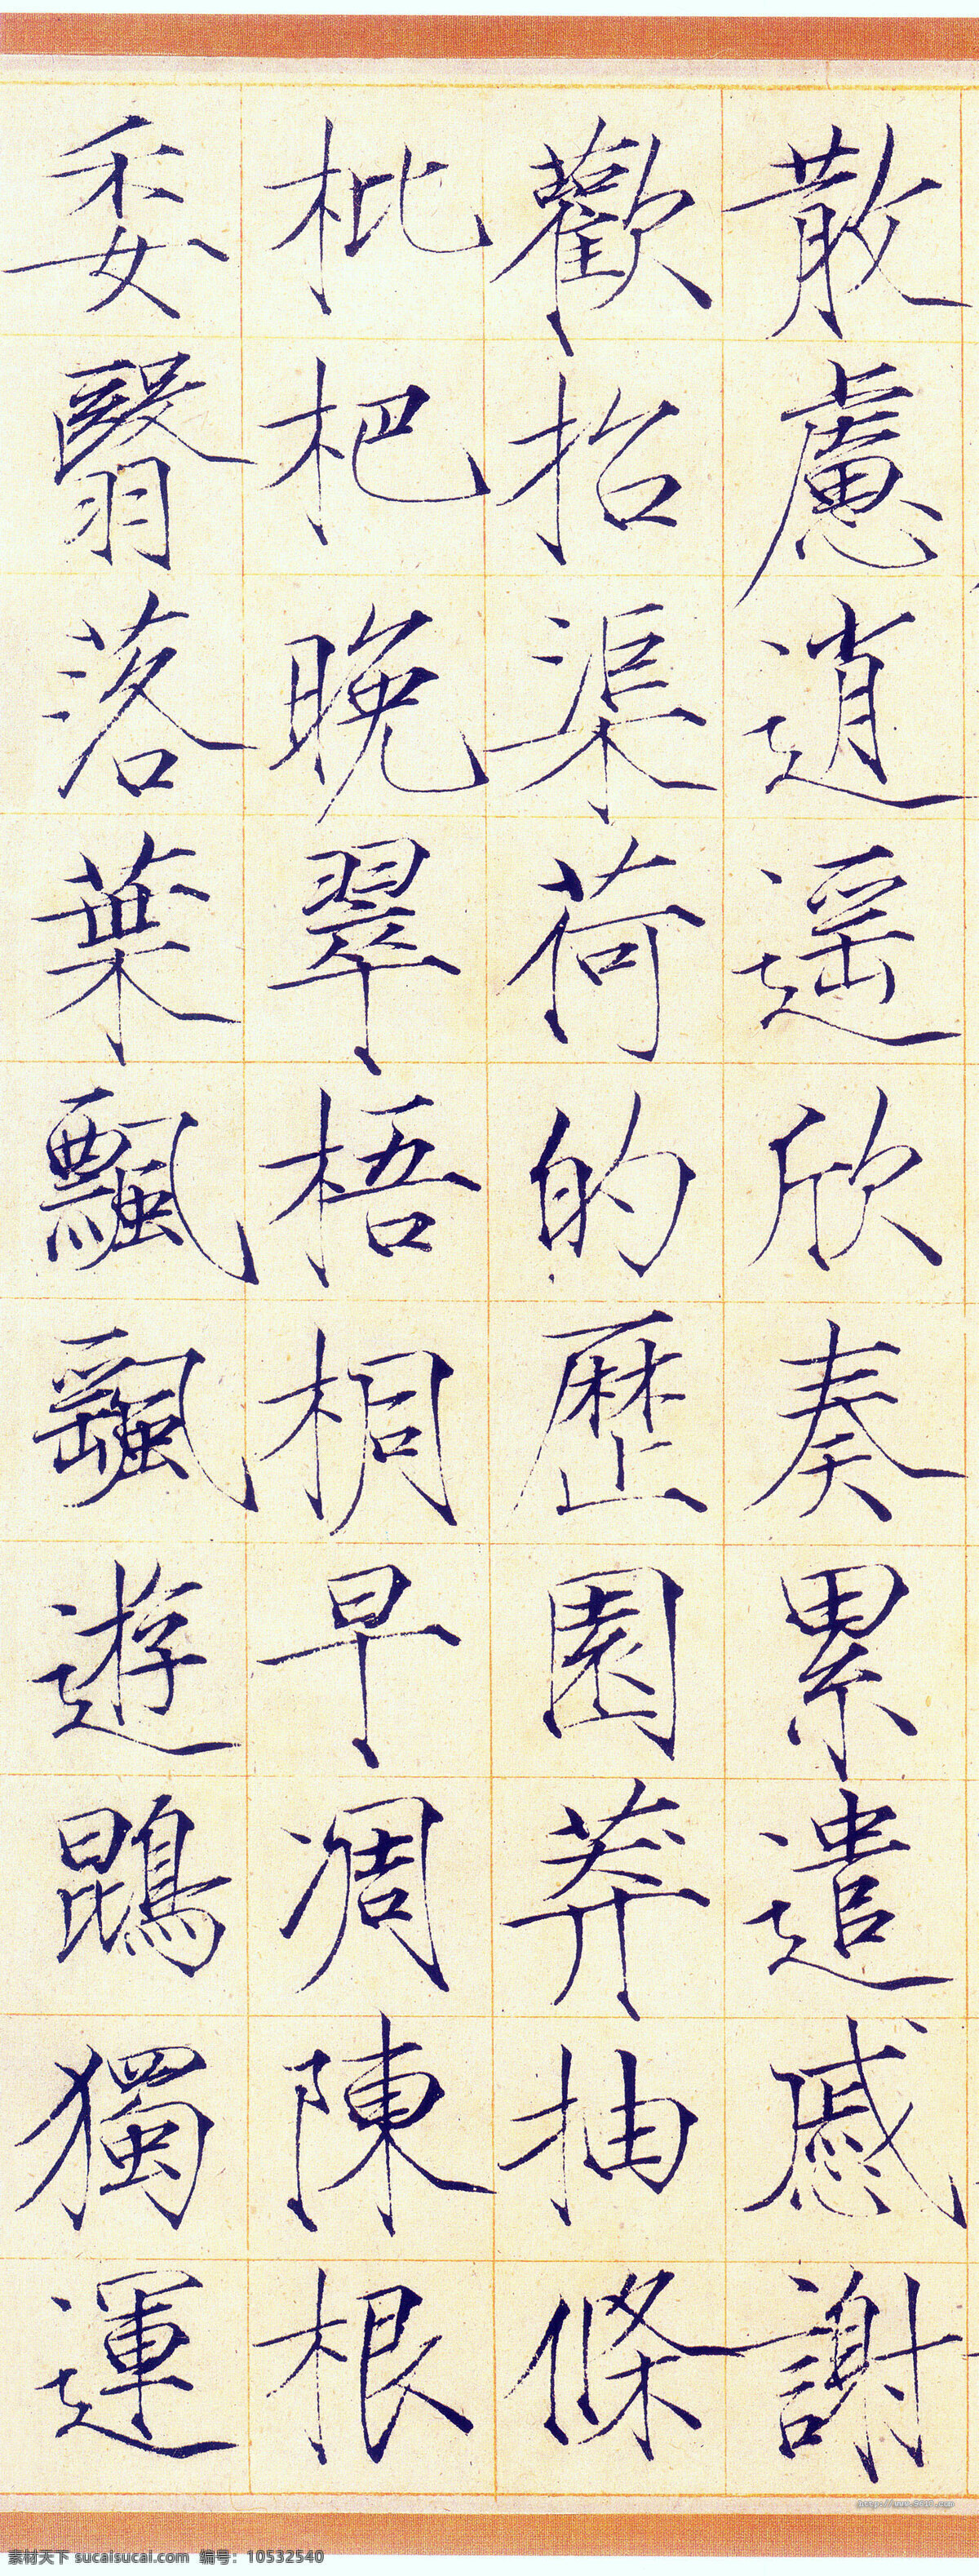 散慮逍遥欣奏累遣慼謝
歡招渠荷的歷園莽抽條
枇杷晚翠梧桐早凋陳根
委翳落葉飄颻遊鵾獨運
素材天下 sucaisucai.com 编号：10532540